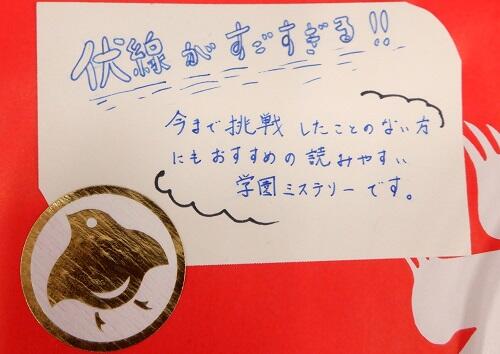 伏線がすごすぎる!!
今まで挑戦したことのない方
にもおすすめの読みやすい
学園ミステリーです。